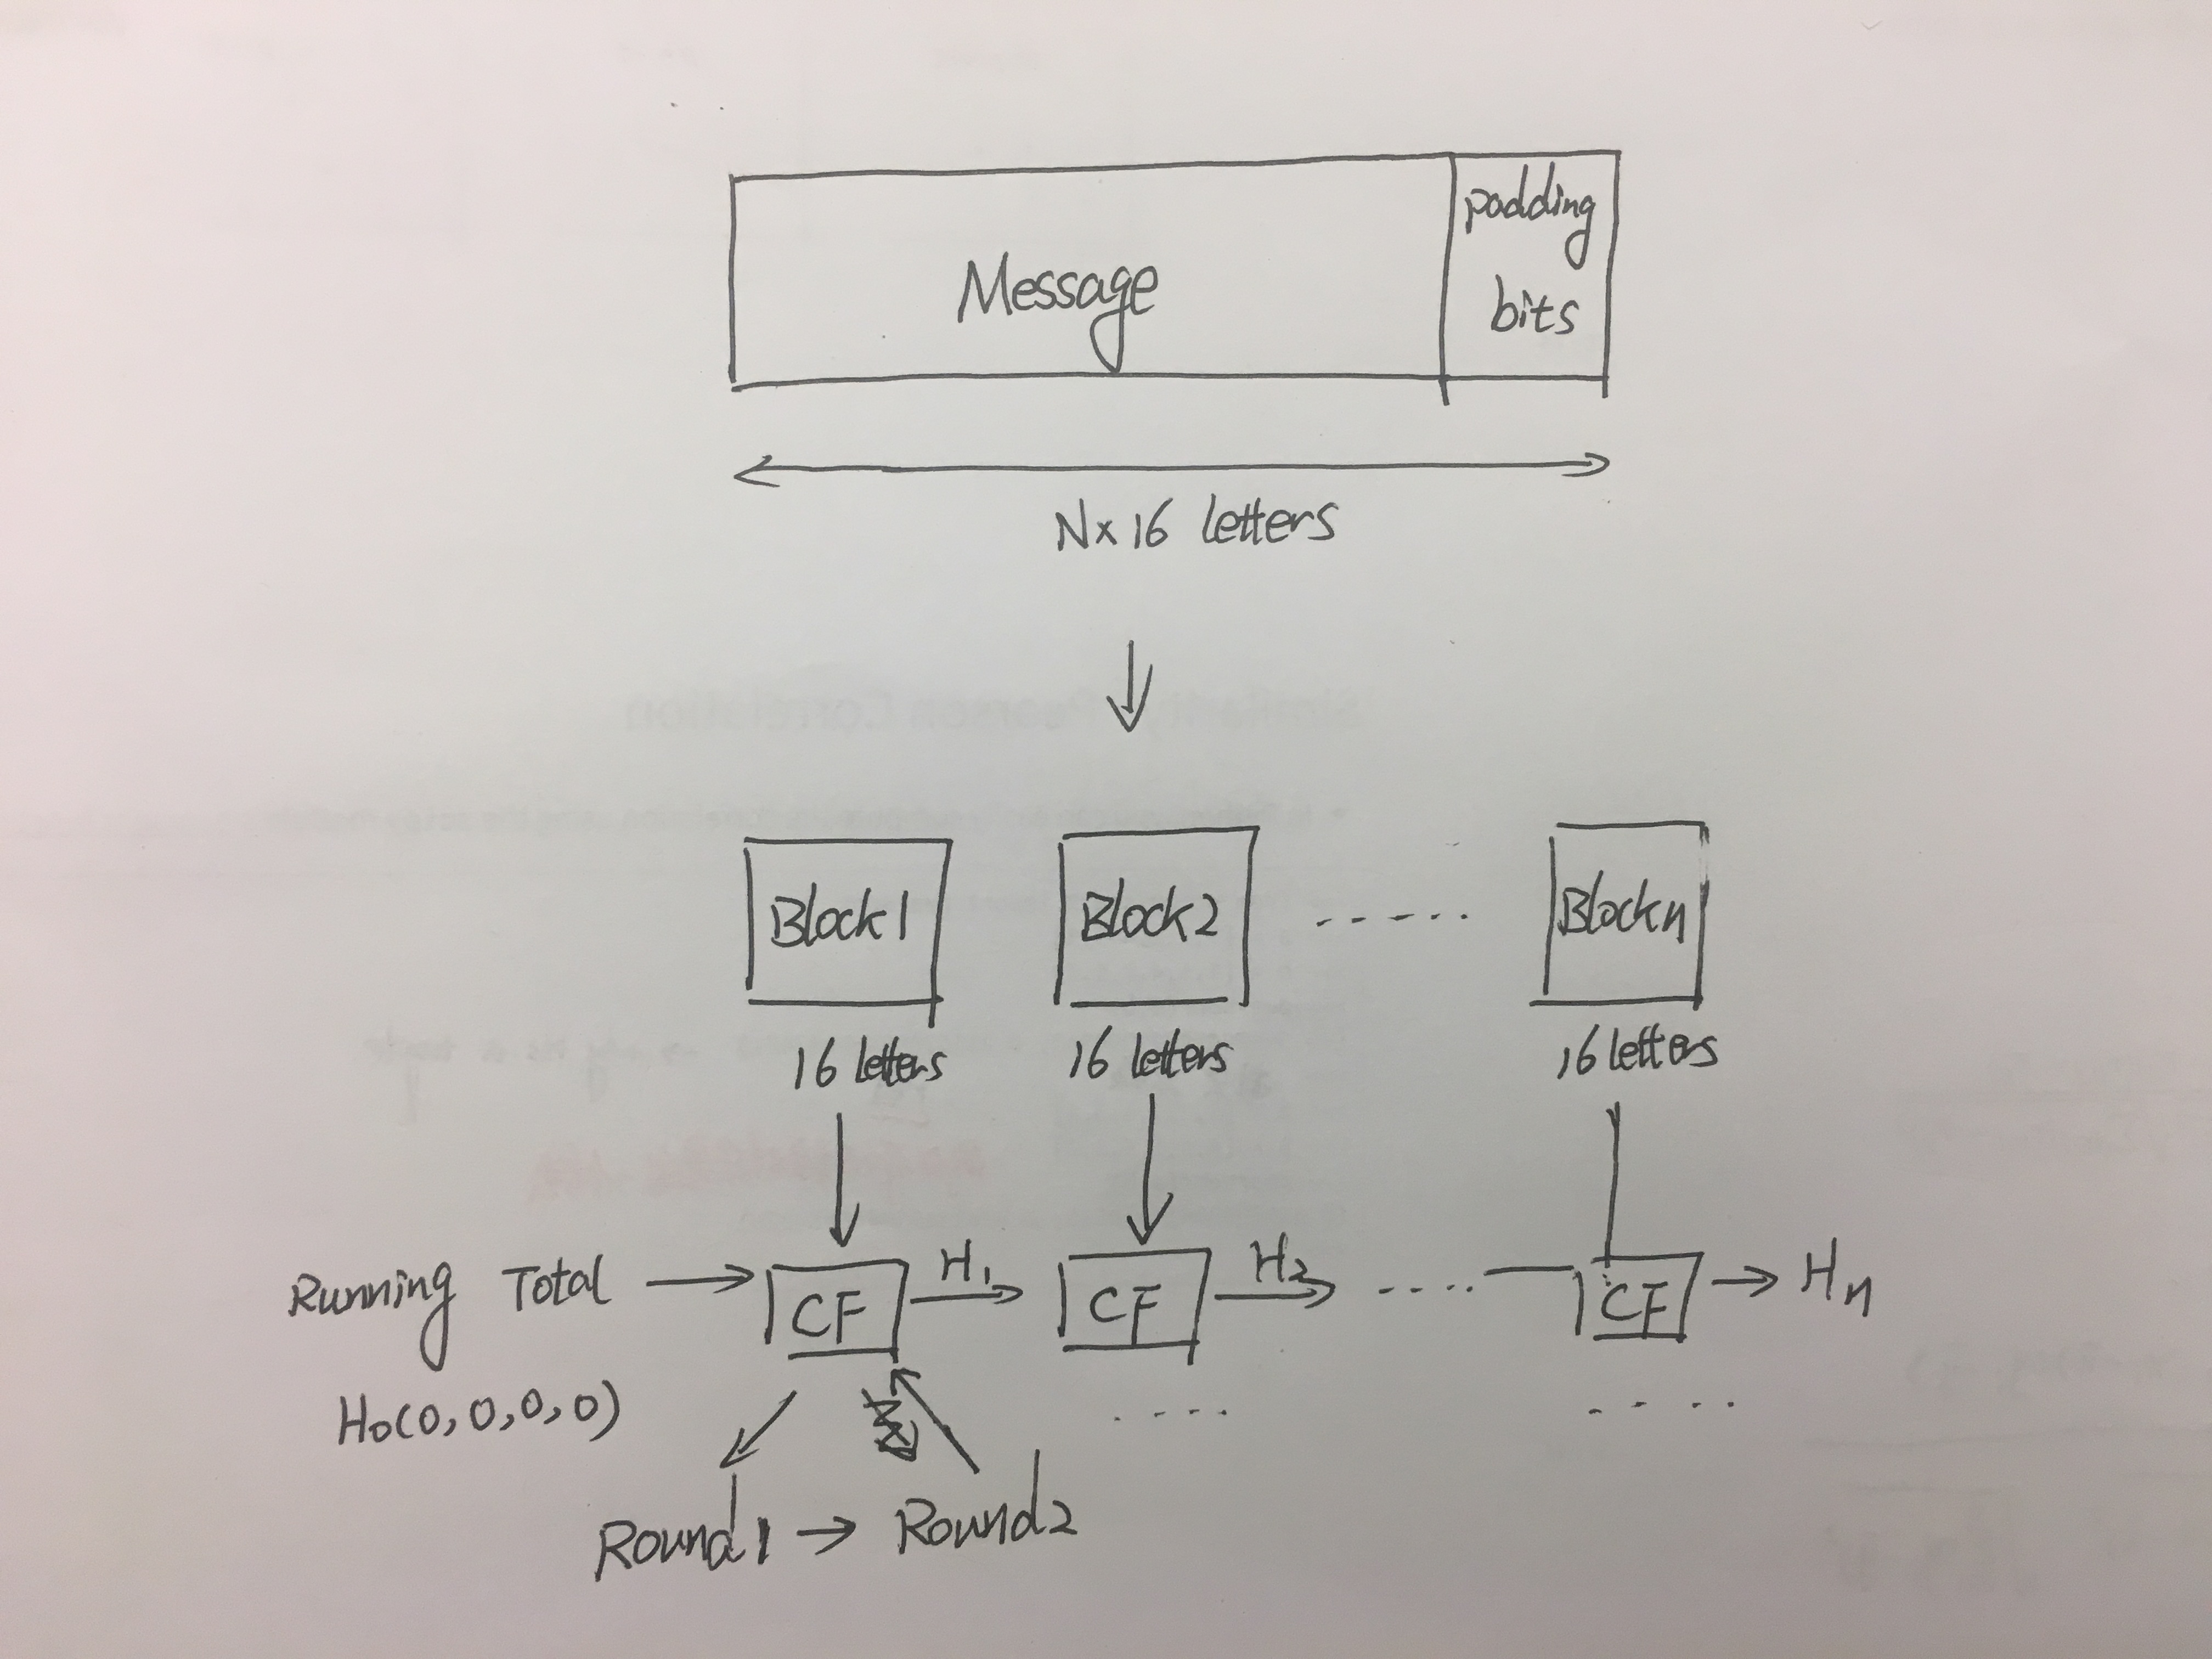 Message
padding
bits
N x 16 letters
Block1 Block2 ...... Blockn
16 letters 16 letters 16 letters
Running Total → CF H1 → CF H2 → ..... CF → Hn
H0(0,0,0,0)
Round1 → Round2